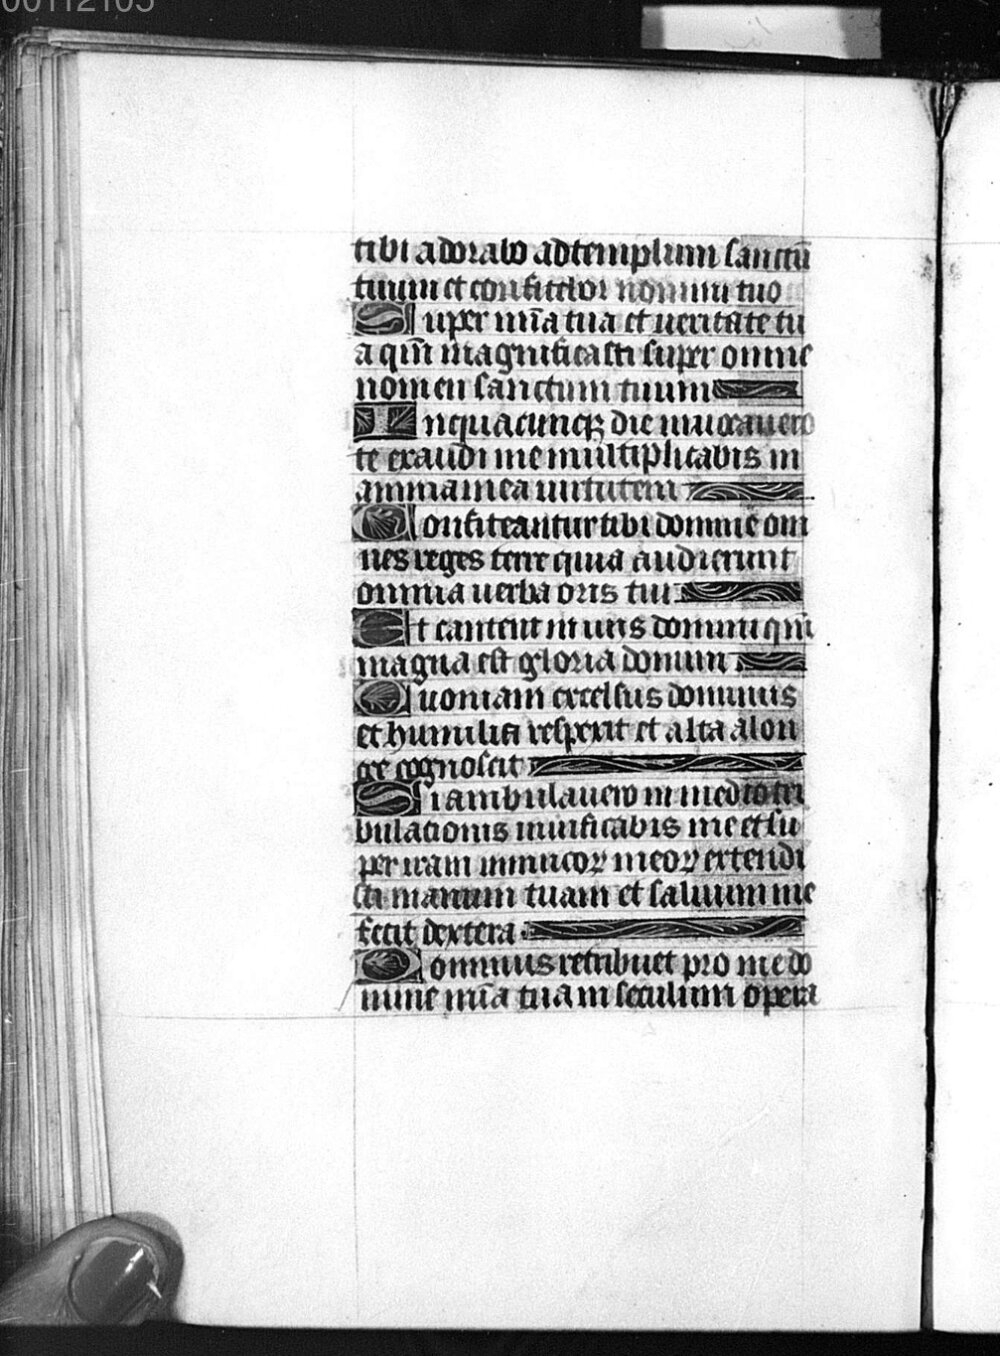 00112105
tibi adorabo ad templum sanctū
tuum et confitebor nomini tuo
Super mīa tua et ueritate tu
a qm̄ magnificasti super omne
nomen sanctum tuum
In quacunqꝫ die inuocauero
te exaudi me multiplicabis in
anima mea uirtutem
Confiteantur tibi domine om
nes reges terre quia audierunt
omnia uerba oris tui
Et cantent in uiis domini qm̄
magna est gloria domini
Quoniam excelsus dominus
et humilia respexit et alta a lon
ge cognoscit
Si ambulauero in medio tri
bulationis uiuificabis me et su
per iram inimicoꝝ meoꝝ extendi
sti manum tuam et saluum me
fecit dextera
Dominus retribuet pro me do
mine mīa tua in seculum opera